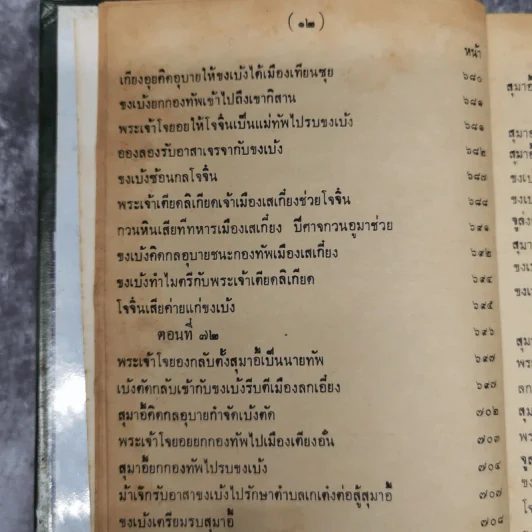 (๑๒)
หน้า
เกียงอุยคิดอุบายให้ขงเบ้งได้เมืองเทียนซุย ๖๘๐
ขงเบ้งยกกองทัพเข้าไปถึงเขากิสาน ๖๘๑
พระเจ้าโจยอยให้โจจิ๋นเป็นแม่ทัพไปรบขงเบ้ง ๖๘๑
อองลองรับอาสาเจรจากับขงเบ้ง ๖๘๒
ขงเบ้งซ้อนกลโจจิ๋น ๖๘๗
พระเจ้าเตียดลิเกียดเจ้าเมืองเสเกี๋ยงช่วยโจจิ๋น ๖๘๘
กวนหินเสียทีทหารเมืองเสเกี๋ยง ปีศาจกวนอูมาช่วย ๖๙๑
ขงเบ้งคิดกลอุบายชนะกองทัพเมืองเสเกี๋ยง ๖๙๒
ขงเบ้งทำไมตรีกับพระเจ้าเตียดลิเกียด ๖๙๔
โจจิ๋นเสียค่ายแก่ขงเบ้ง ๖๙๕
ตอนที่ ๗๒ ๖๙๖
พระเจ้าโจยองกลับตั้งสุมาอี้เป็นนายทัพ ๖๙๗
เบ้งตัดกลับเข้ากับขงเบ้งรีบตีเมืองลกเอี๋ยง ๖๙๗
สุมาอี้คิดกลอุบายกำจัดเบ้งตัด ๗๐๒
พระเจ้าโจยอยยกกองทัพไปเมืองเตียงอั๋น ๗๐๓
สุมาอี้ยกกองทัพไปรบขงเบ้ง ๗๐๔
ม้าเจ๊กรับอาสาขงเบ้งไปรักษาตำบลเกเต๋งต่อสู้สุมาอี้ ๗๐๗
ขงเบ้งเตรียมรบสุมาอี้ ๗๐๘